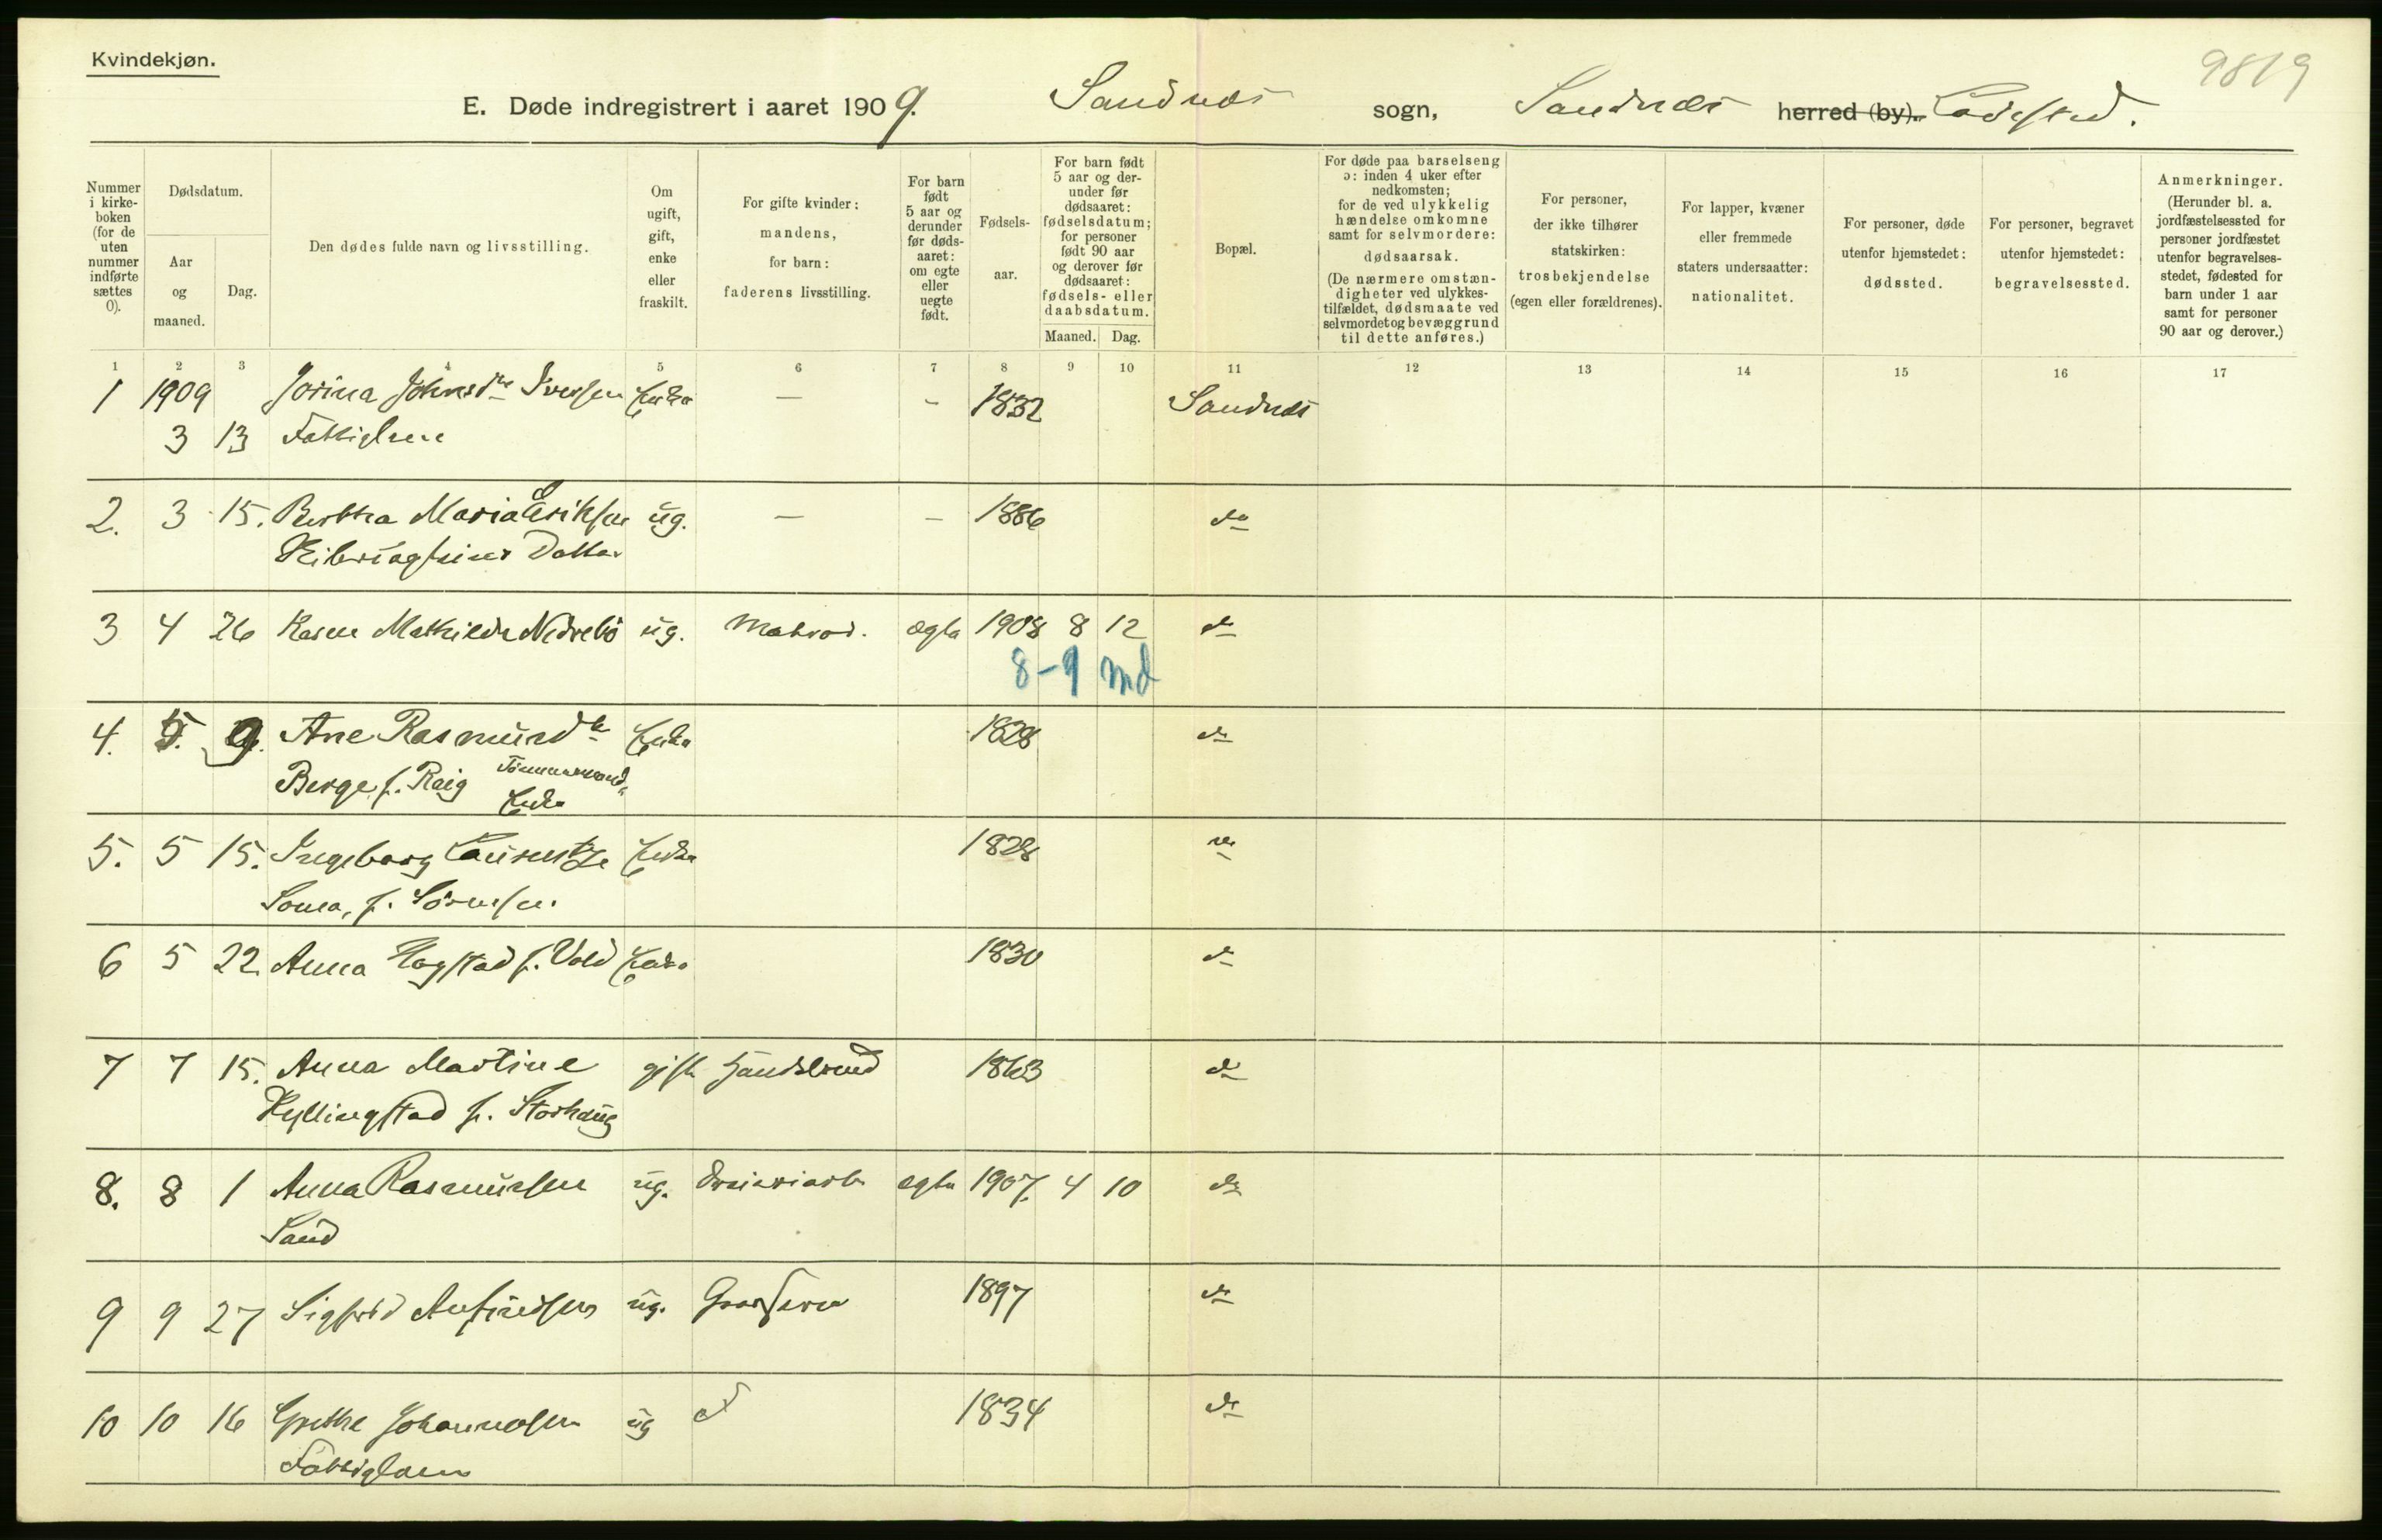 Kvindekjøn.
9819
E. Døde indregistrert i aaret 1909. Sandnes sogn, Sandnes herred (by). Ladested.
Nummer i kirkeboken (for de uten nummer indførte sættes 0).
Dødsdatum.
Aar og maaned.
Dag.
Den dødes fulde navn og livsstilling.
Om ugift, gift, enke eller fraskilt.
For gifte kvinder: mandens, for barn: faderens livsstilling.
For barn født 5 aar og derunder før dødsaaret: om egte eller uegte født.
Fødselsaar.
For barn født 5 aar og derunder før dødsaaret: fødselsdatum; for personer født 90 aar og derover før dødsaaret: fødsels- eller daabsdatum.
Maaned. Dag.
Bopæl.
For døde paa barselseng ɔ: inden 4 uker efter nedkomsten; for de ved ulykkelig hændelse omkomne samt for selvmordere: dødsaarsak.
(De nærmere omstændigheter ved ulykkestilfældet, dødsmaate ved selvmordet og bevæggrund til dette anføres.)
For personer, der ikke tilhører statskirken: trosbekjendelse (egen eller forældrenes).
For lapper, kvæner eller fremmede staters undersaatter: nationalitet.
For personer, døde utenfor hjemstedet: dødssted.
For personer, begravet utenfor hjemstedet: begravelsessted.
Anmerkninger.
(Herunder bl. a. jordfæstelsessted for personer jordfæstet utenfor begravelsesstedet, fødested for barn under 1 aar samt for personer 90 aar og derover.)
1 2 3 4 5 6 7 8 9 10 11 12 13 14 15 16 17
1 1909 Jorina Johnsdtr Iversen Enke — - 1832 Sandnes
3 13 Fattiglem
2. 3 15. Bertha Maria Eriksen ug. — — 1886 do
Datter
3 4 26 Karen Mathilde Nedrebö ug. Matros. ægte 1908 8 12 do
8-9 md
4. 5. 9. Ane Rasmusd Enke 1828 do
Berge f. Raeg Tømmermands
Enke
5. 5 15. Ingeborg Lauritze Enke 1828 do
Soma, f. Sörensen.
6 5 22 Anna Hogstad f. Vold Enke 1830 do
7 7 15. Anna Martine gift Handelsmand 1863 do
Kyllingstad f. Storhaug
8. 8 1 Anna Rasmussen ug. ægte 1907. 4 10 do
Sand
9 9 27 Sigfrid Anfindsen ug. 1897 do
10 10 16 Grethe Johannesen ug 1834 do
Fattiglem